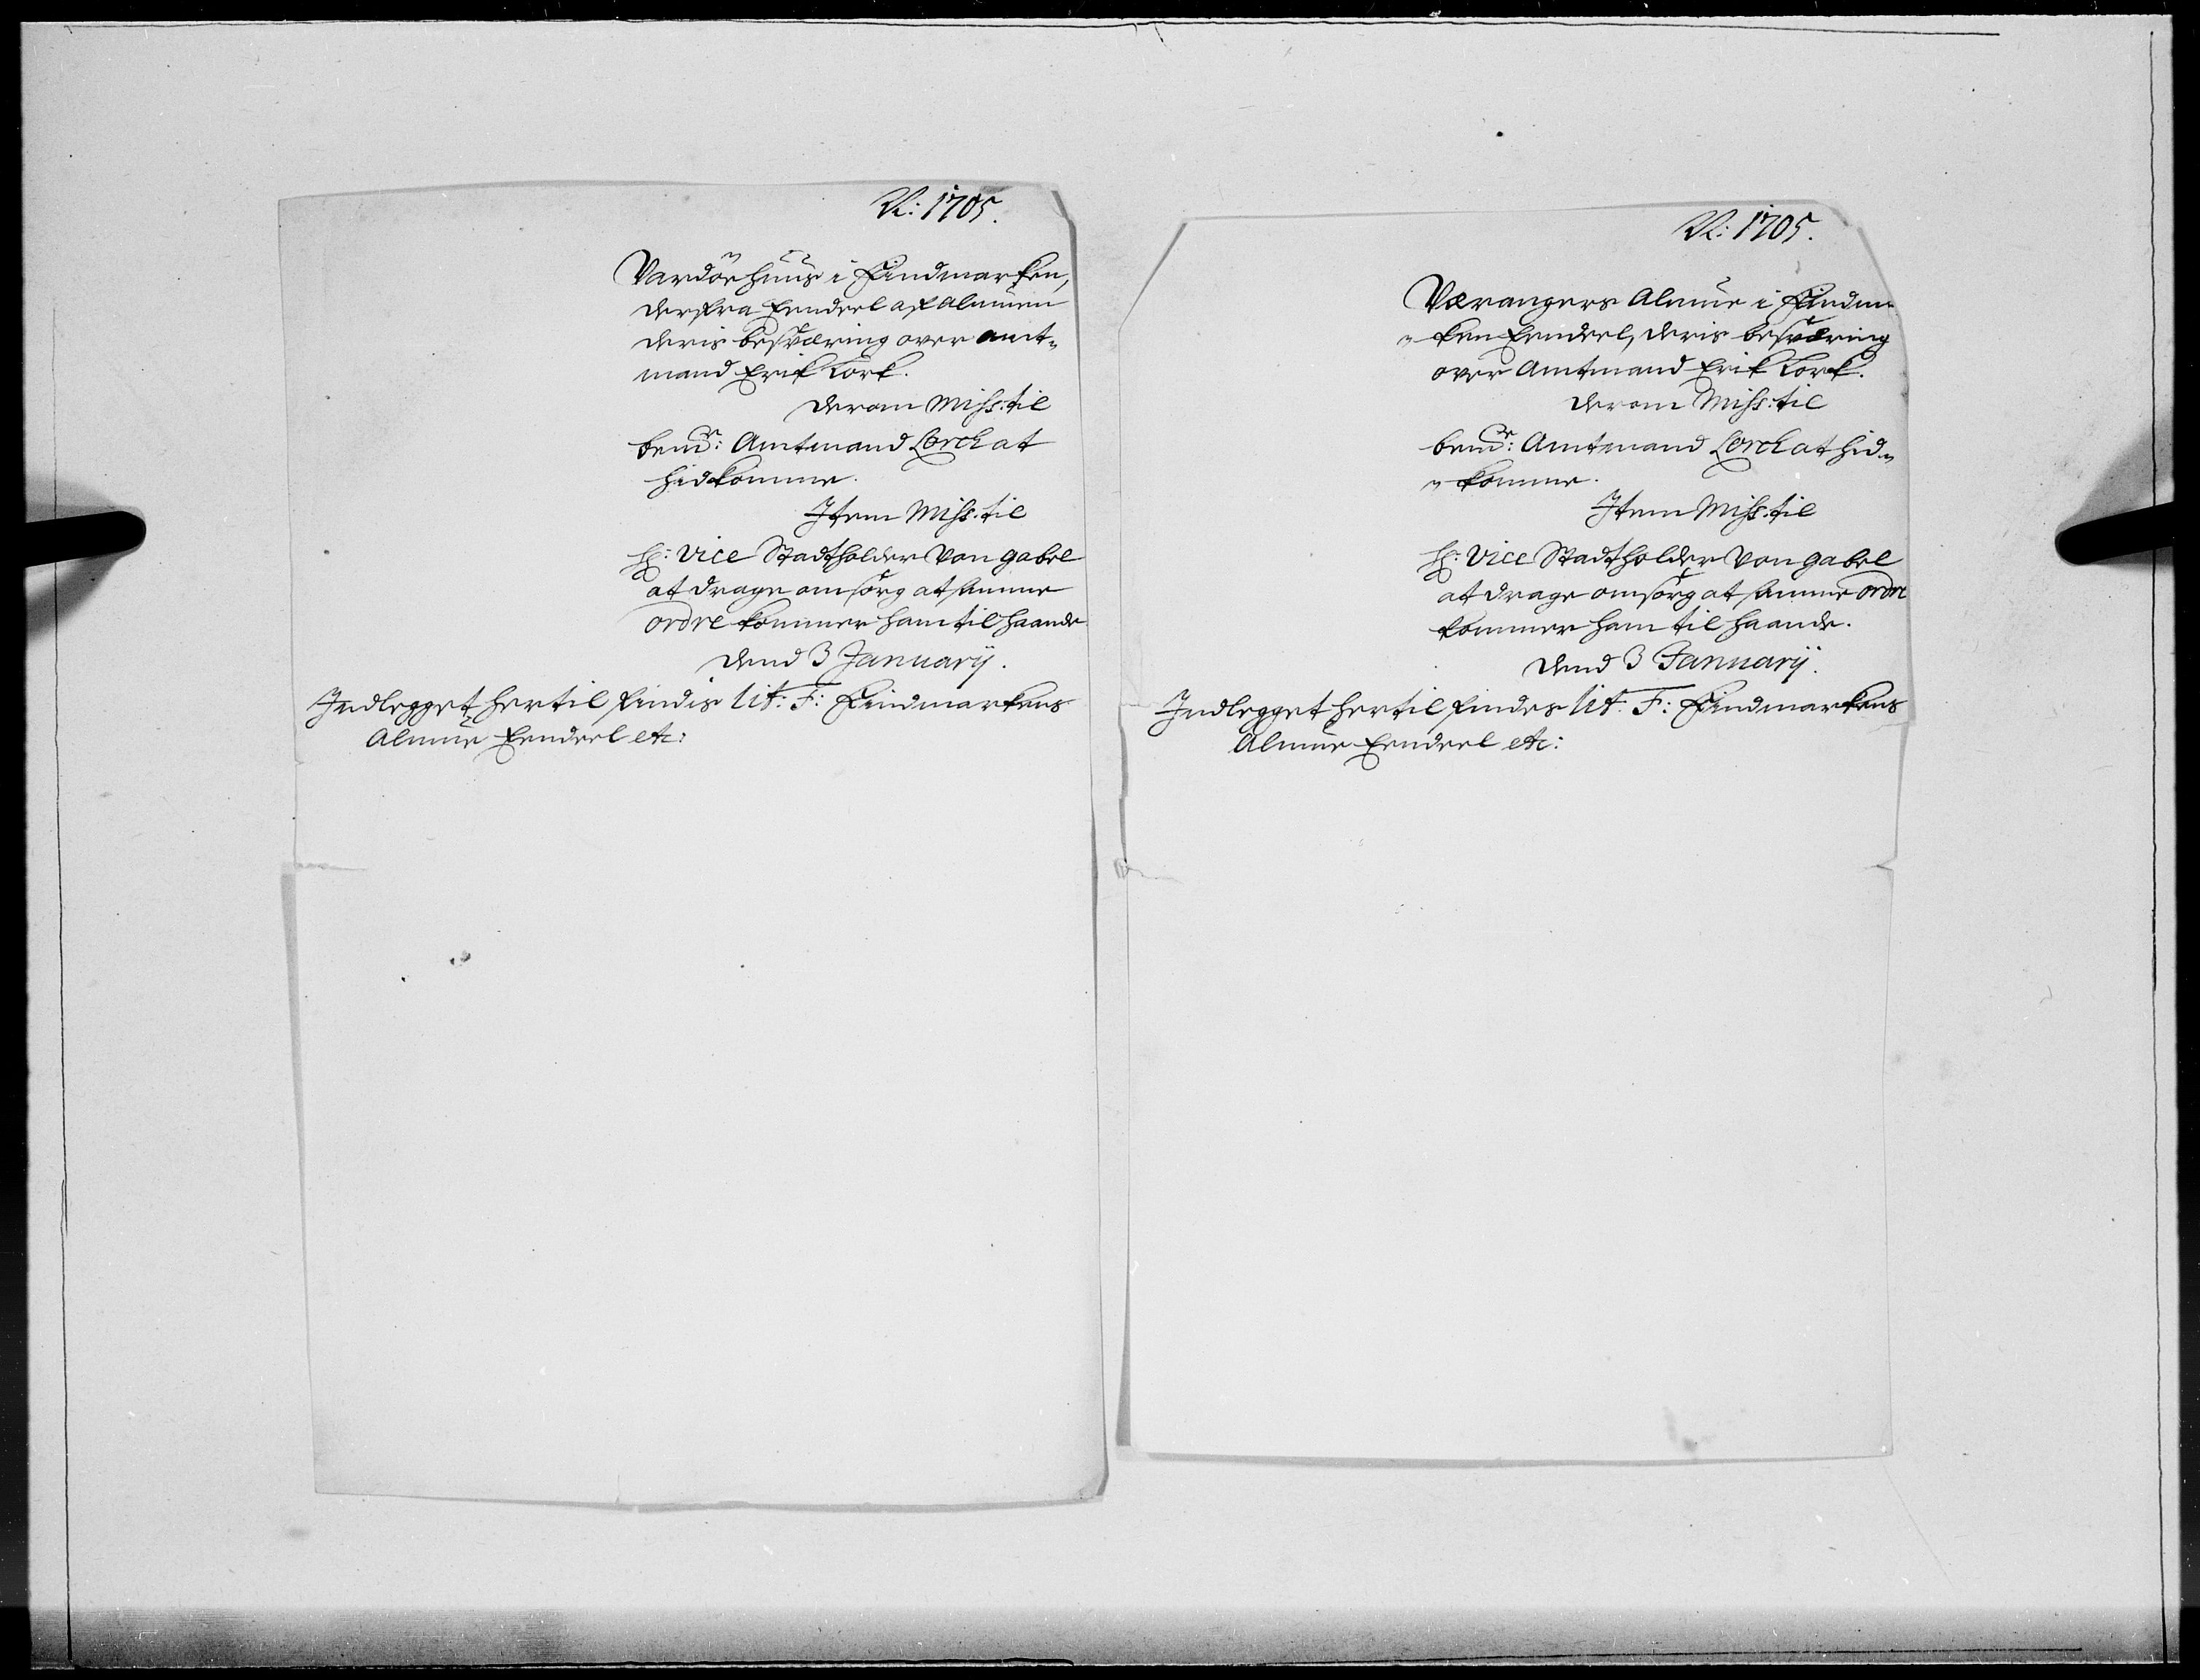 N: 1705.
Vardöehuus i Findmarken,
derfra Eendeel af Almuen
deris besværing over Amt-
mand Erik Lork.
Derom Miss: til
bemte: Amtmand Lorch at
hidkomme.
Item Miss: til
Hr: Vice Stadtholder Von Gabel
at drage omsorg at samme
ordre kommer ham til haande
Dend 3 Januarij.
Indlegget hertil findis lit: F: Findmarkens
Almue Eendeel etc:
N: 1705.
Værangers Almue i Findmar
ken Eendeel, deris besværing
over Amtmand Erik Lork.
Derom Miss: til
bemte: Amtmand Lorch at hid-
komme.
Item Miss: til
Hr: Vice Stadtholder Von Gabel
at drage omsorg at samme ordre
kommer ham til haande.
Dend 3 Januarij.
Indlegget hertil findes lit: F: Findmarkens
Almue Eendeel etc: